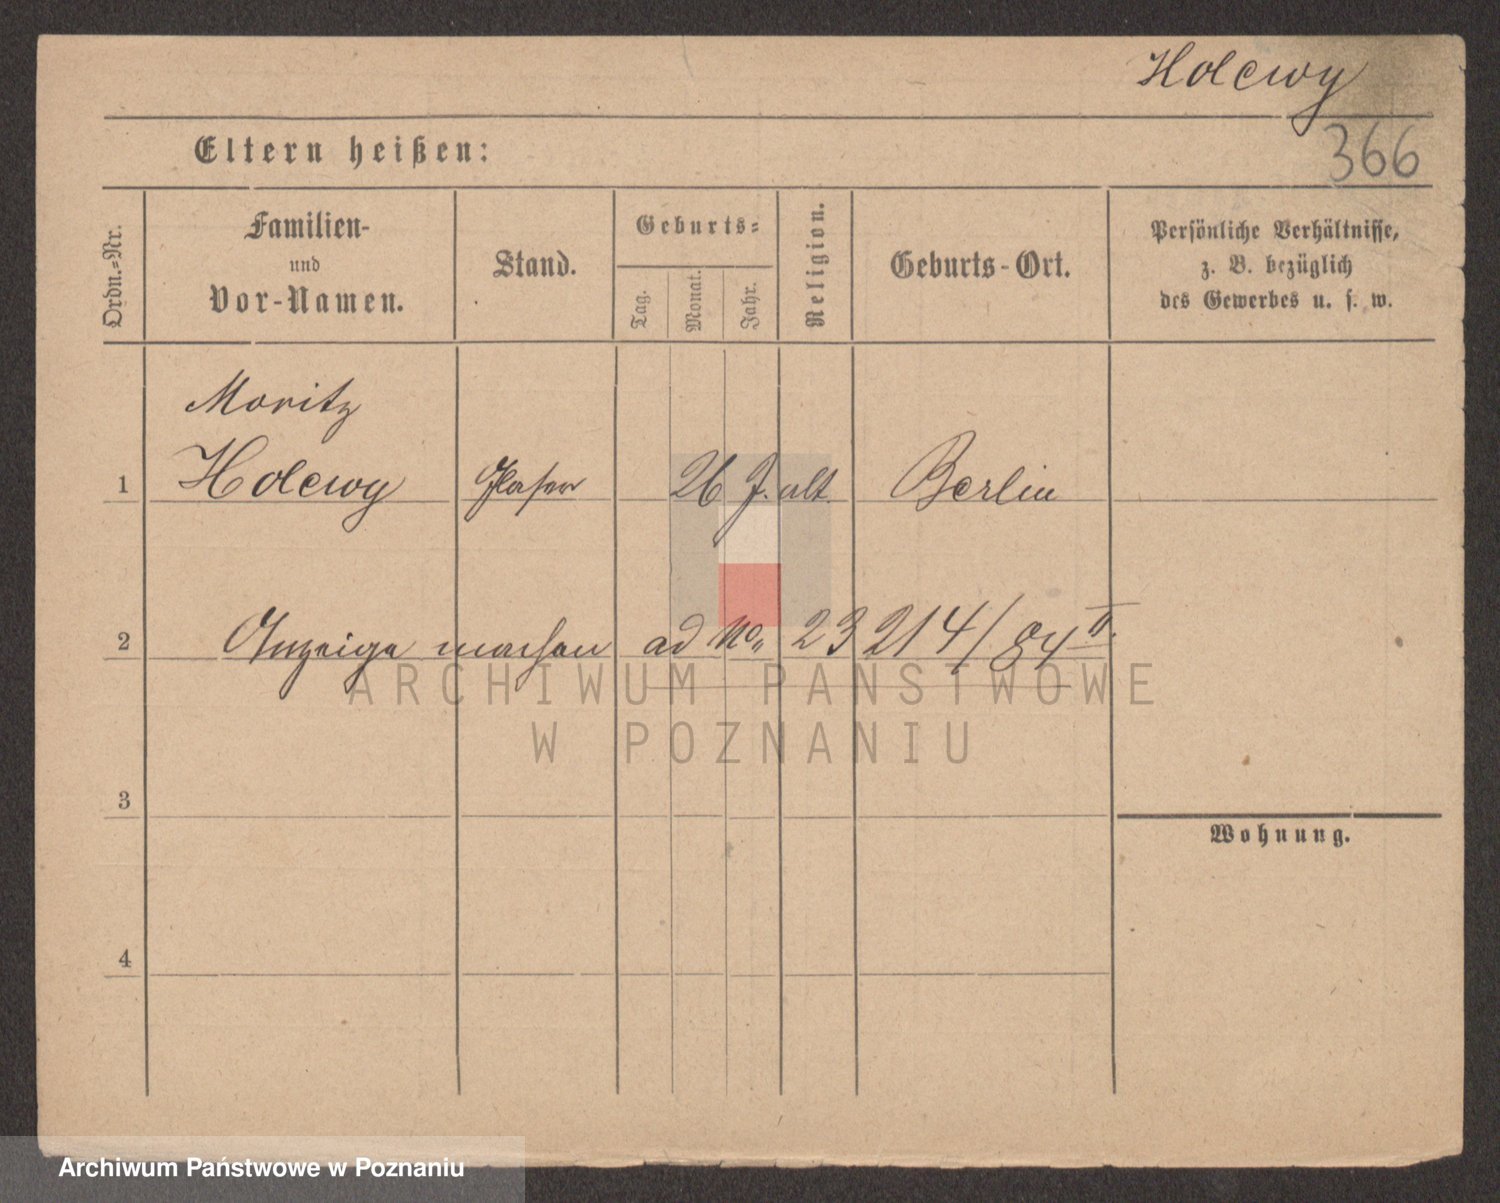 Holewy
366
Eltern heißen:
Ordn.-Nr.
Familien-
und
Vor-Namen.
Stand.
Geburts-
Tag.
Monat.
Jahr.
Religion.
Geburts-Ort.
Persönliche Verhältnisse,
z. B. bezüglich
des Gewerbes u. s. w.
Moritz
1 Holewy Glaser 26 J. alt. Berlin
2 Anzeige machen ad No. 23214/84 II.
3
Wohnung.
4
ARCHIWUM PAŃSTWOWE
W POZNANIU
Archiwum Państwowe w Poznaniu